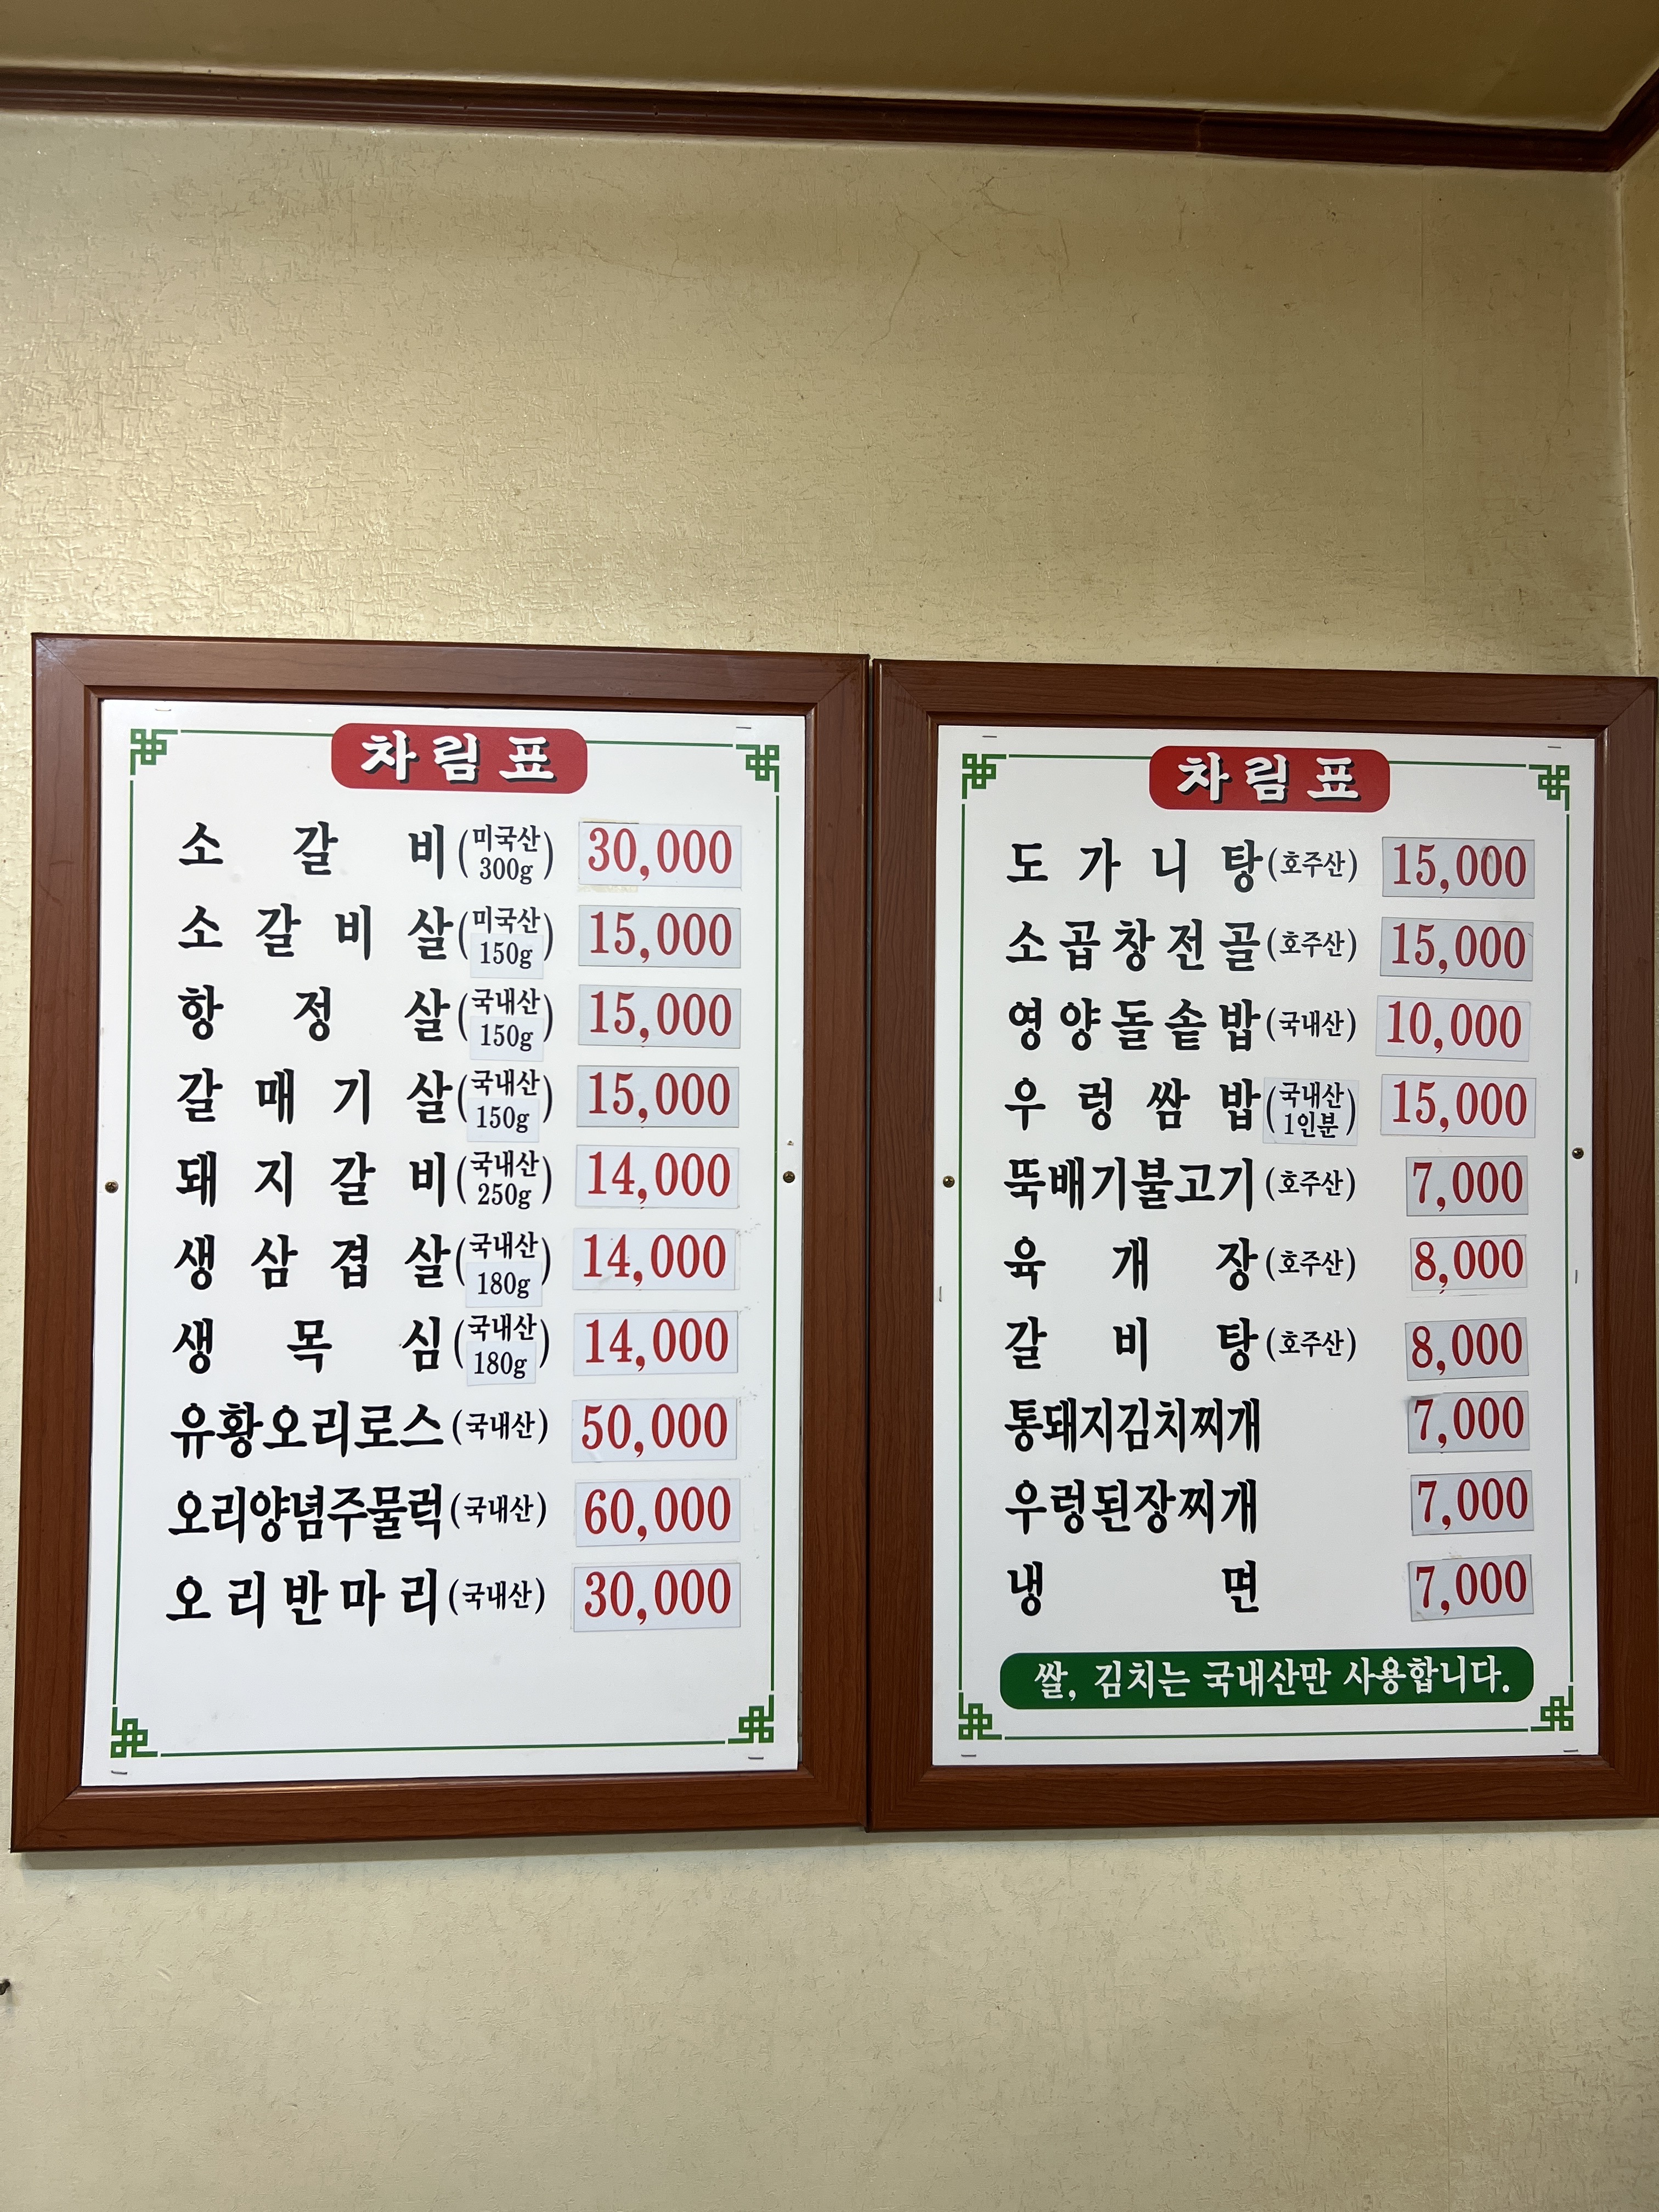 차림표
소갈비(미국산 300g) 30,000
소갈비살(미국산 150g) 15,000
항정살(국내산 150g) 15,000
갈매기살(국내산 150g) 15,000
돼지갈비(국내산 250g) 14,000
생삼겹살(국내산 180g) 14,000
생목심(국내산 180g) 14,000
유황오리로스(국내산) 50,000
오리양념주물럭(국내산) 60,000
오리반마리(국내산) 30,000
차림표
도가니탕(호주산) 15,000
소곱창전골(호주산) 15,000
영양돌솥밥(국내산) 10,000
우렁쌈밥(국내산 1인분) 15,000
뚝배기불고기(호주산) 7,000
육개장(호주산) 8,000
갈비탕(호주산) 8,000
통돼지김치찌개 7,000
우렁된장찌개 7,000
냉면 7,000
쌀, 김치는 국내산만 사용합니다.